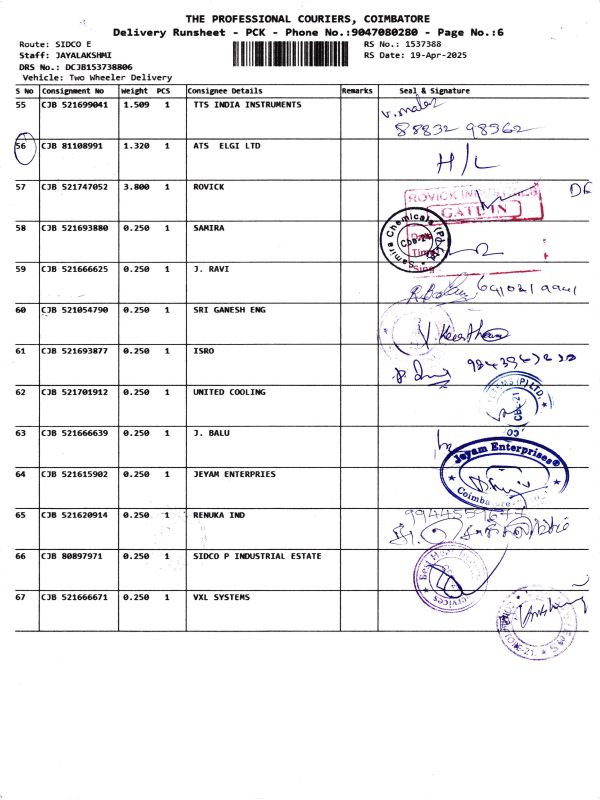 THE PROFESSIONAL COURIERS, COIMBATORE
Delivery Runsheet - PCK - Phone No.:9047080280 - Page No.:6
Route: SIDCO E RS No.: 1537388
Staff: JAYALAKSHMI RS Date: 19-Apr-2025
DRS No.: DCJB153738806
Vehicle: Two Wheeler Delivery
S No Consignment No Weight PCS Consignee Details Remarks Seal & Signature
55 CJB 521699041 1.509 1 TTS INDIA INSTRUMENTS
88832 98562
56 CJB 81108991 1.320 1 ATS ELGI LTD H/L
57 CJB 521747052 3.800 1 ROVICK DE
ROVICK INDUSTRIES
GATE IN
58 CJB 521693880 0.250 1 SAMIRA
Samira Chemicals (P) Ltd
Cbe-21
Date
Time
Sing
59 CJB 521666625 0.250 1 J. RAVI
60 CJB 521054790 0.250 1 SRI GANESH ENG
61 CJB 521693877 0.250 1 ISRO
62 CJB 521701912 0.250 1 UNITED COOLING
(P) LTD.
CBE-21
63 CJB 521666639 0.250 1 J. BALU
64 CJB 521615902 0.250 1 JEYAM ENTERPRIES
Jeyam Enterprises
Coimbatore
65 CJB 521620914 0.250 1 RENUKA IND
66 CJB 80897971 0.250 1 SIDCO P INDUSTRIAL ESTATE
Services
67 CJB 521666671 0.250 1 VXL SYSTEMS